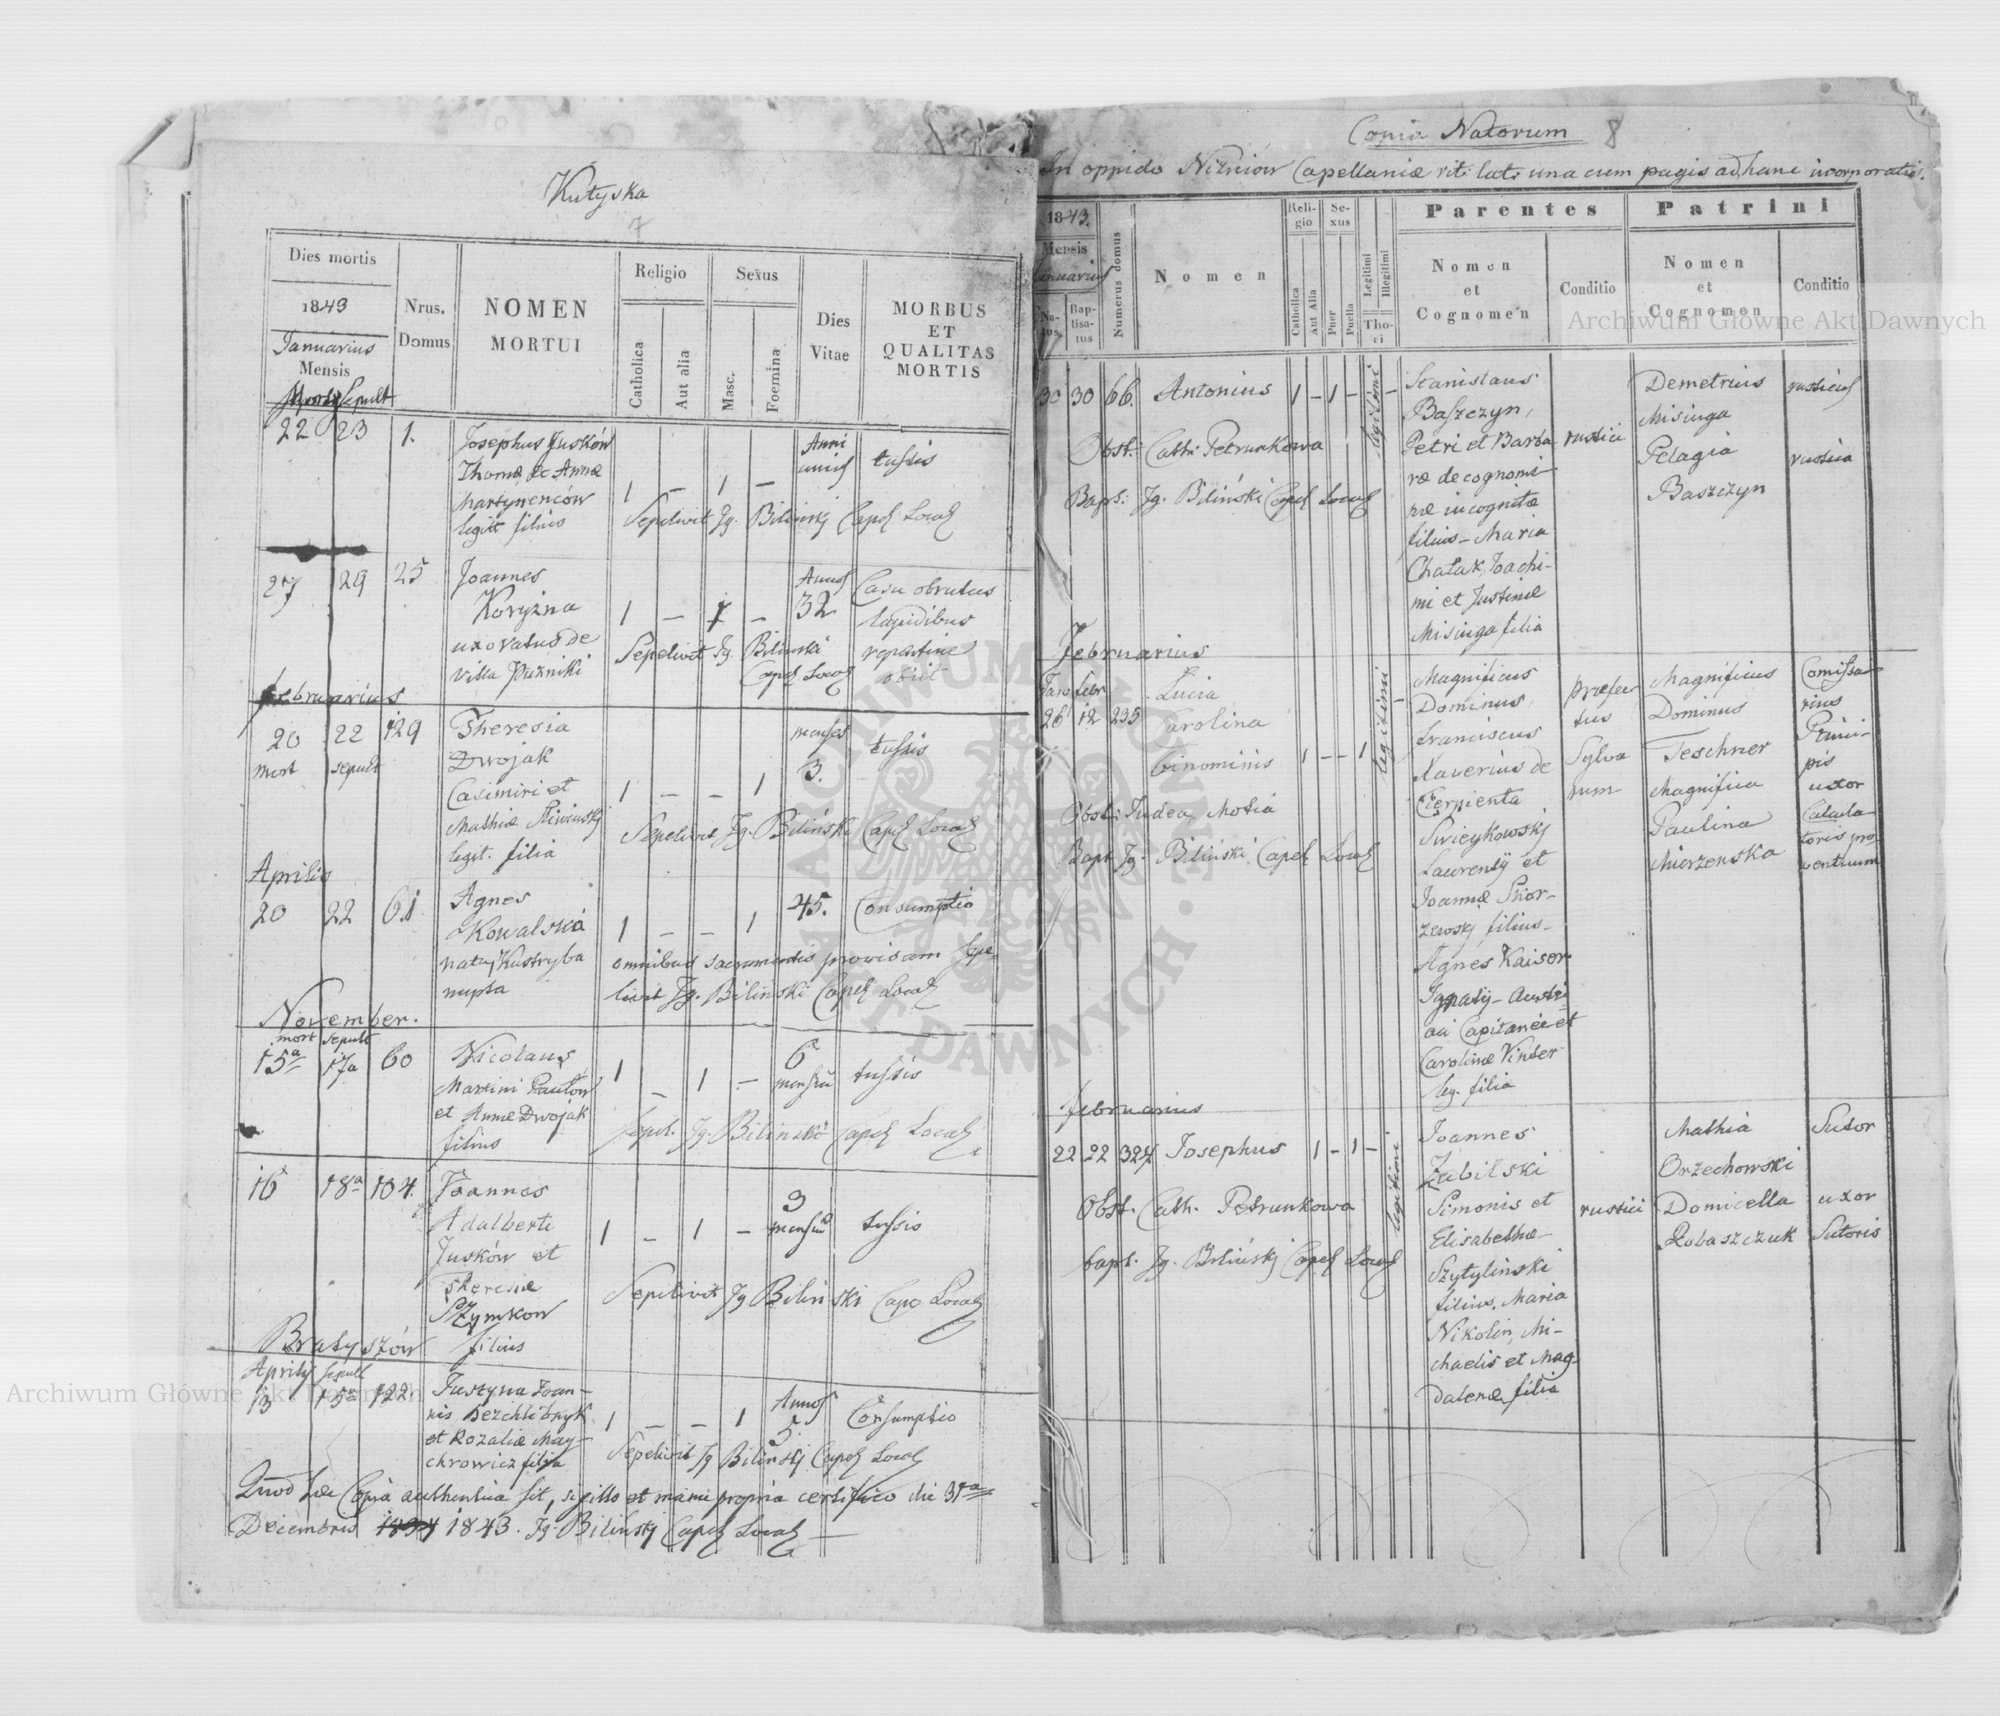 Kutyska
7
Dies mortis
1843
Januarius
Mensis
Nrus.
Domus
NOMEN
MORTUI
Religio
Catholica
Aut alia
Sexus
Masc.
Foemina
Dies
Vitae
MORBUS
ET
QUALITAS
MORTIS
22 23 1.
Josephus Jusków
Thomæ & Annæ
Martynenców
legit filius
1 – 1 –
Anni
tussis
Sepelivit Jg. Biliński Capel Local
27 29 25
Joannes
Koryzna
uxoratus de
villa Puzniki
1 – 1 –
Annos
32
Casu obrutus
lapidibus
repentine
obiit
Sepelivit Jg. Biliński
Capel Local
Februarius
20 22 129
mort sepult
Theresia
Dwojak
Casimiri et
Mathiæ
legit. filia
1 – – 1
menses
3.
tussis
Sepelivit Jg. Biliński Capel Local
Aprilis
20 22 61
Agnes
Kowalska
nata Kustryba
nupta
1 – – 1
45.
Consumptio
omnibus sacramentis provisam sepe
livit Jg. Biliński Capel Local
November.
mort sepult
15a 17a 60
Nicolaus
Martini Pautow
et Annæ Dwojak
filius
1 – 1 –
6
mensium
tussis
Sepel. Jg. Biliński Capel Local
16 18a 104.
Joannes
Adalberti
Jusków et
Theresiæ
Szymkow
filius
1 – 1 –
3
mensium
tussis
Sepelivit Jg Biliński Cape Local
Bratyszów
Aprilis sepult
13 15a 122
Justyna Joan-
nis Bezchlibnyk
et Rozaliæ May-
chrowicz filia
1 – – 1
Annos
5.
Consumptio
Sepelivit Jg Biliński Capel Local
Quod hæc Copia authentica sit, sigillo et manu propria certifico die 31a
Decembris 1843. Jg. Biliński Capel Local
Copia Natorum 8
In oppido Nizniów Capellaniæ rit: lat: una cum pagis ad hanc incorporatis.
1843.
Mensis
Januarius
Na-
tus
Bap-
tisa-
tus
Numerus domus
Nomen
Reli-
gio
Catholica
Aut Alia
Se-
xus
Puer
Puella
Legitimi
Illegitimi
Tho-
ri
Parentes
Nomen
et
Cognomen
Conditio
Patrini
Nomen
et
Cognomen
Conditio
30 30 66. Antonius 1 – 1 – legitimi
Obst: Cath: Petrunkowa
Bapt: Jg. Biliński Capel Local
Stanislaus
Baszczyn,
Petri et Barba
ræ de cognomi-
ne incognitæ
filius – Maria
Chatak, Joachi-
mi et Justinæ
Misiuga filia
rustici
Demetrius
Misiuga
Pelagia
Baszczyn
rusticus
rustica
Februarius
Jan febr
26 12 235
Lucia
Carolina
binominis
1 – – 1 legitimi
Obst: Judea Motia
Bapt Jg. Biliński Capel Local
Magnificus
Dominus,
Franciscus
Xaverius de
Cierpienta
Swieykowski
Laurentÿ et
Joannæ Skor-
zewski filius –
Agnes Kaiser
Ignatij – Austri
aci Capitanei et
Carolinæ Vinter
leg. filia
Præfec
tus
Sylva
rum
Magnificus
Dominus
Teschner
Magnifica
Paulina
Mierzenska
Comissa-
rius
Princi-
pis
uxor
toris pro
ventuum
Februarius
22 22 327 Josephus 1 – 1 – legitimi
Obst. Cath. Petrunkowa
bapt. Jg. Biliński Capel Local
Joannes
Zabilski
Simonis et
Elisabethæ
Szytylinski
filius. Maria
Nikolin, Mi-
chaelis et Mag-
dalenæ filia
rustici
Mathia
Orzechowski
Domicella
Robaszczuk
Sutor
uxor
Sutoris
Archiwum Główne Akt Dawnych
Archiwum Główne Akt Dawnych
ARCHIWUM GŁÓWNE AKT DAWNYCH